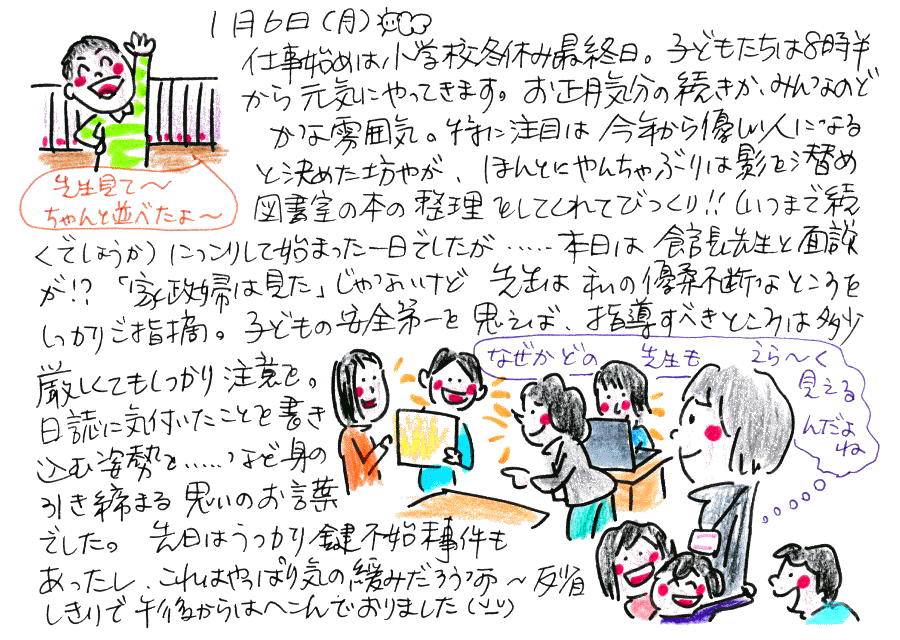 1月6日(月)
仕事始めは小学校冬休み最終日。子どもたちは8時半
から元気にやってきます。お正月気分の続きか、みんなのど
かな雰囲気。特に注目は今年から優しい人になる
と決めた坊やが、ほんとにやんちゃぶりは影を潜め
図書室の本の整理をしてくれてびっくり!!(いつまで続
くでしょうか)にっこりして始まった一日でしたが……本日は館長先生と面談
が!?「家政婦は見た」じゃないけど先生は私の優柔不断なところを
しっかりご指摘。子どもの安全第一を思えば、指導すべきところは多少
厳しくてもしっかり注意を。
日誌に気付いたことを書き
込む姿勢を……など身の
引き締まる思いのお言葉
でした。先日はうっかり鍵不始末事件も
あったし、これはやっぱり気の緩みだろうな~反省
しきりで午後からはへこんでおりました(
先生見て~
ちゃんと並べたよ~
なぜかどの先生もえら~く
見える
んだよ
ね